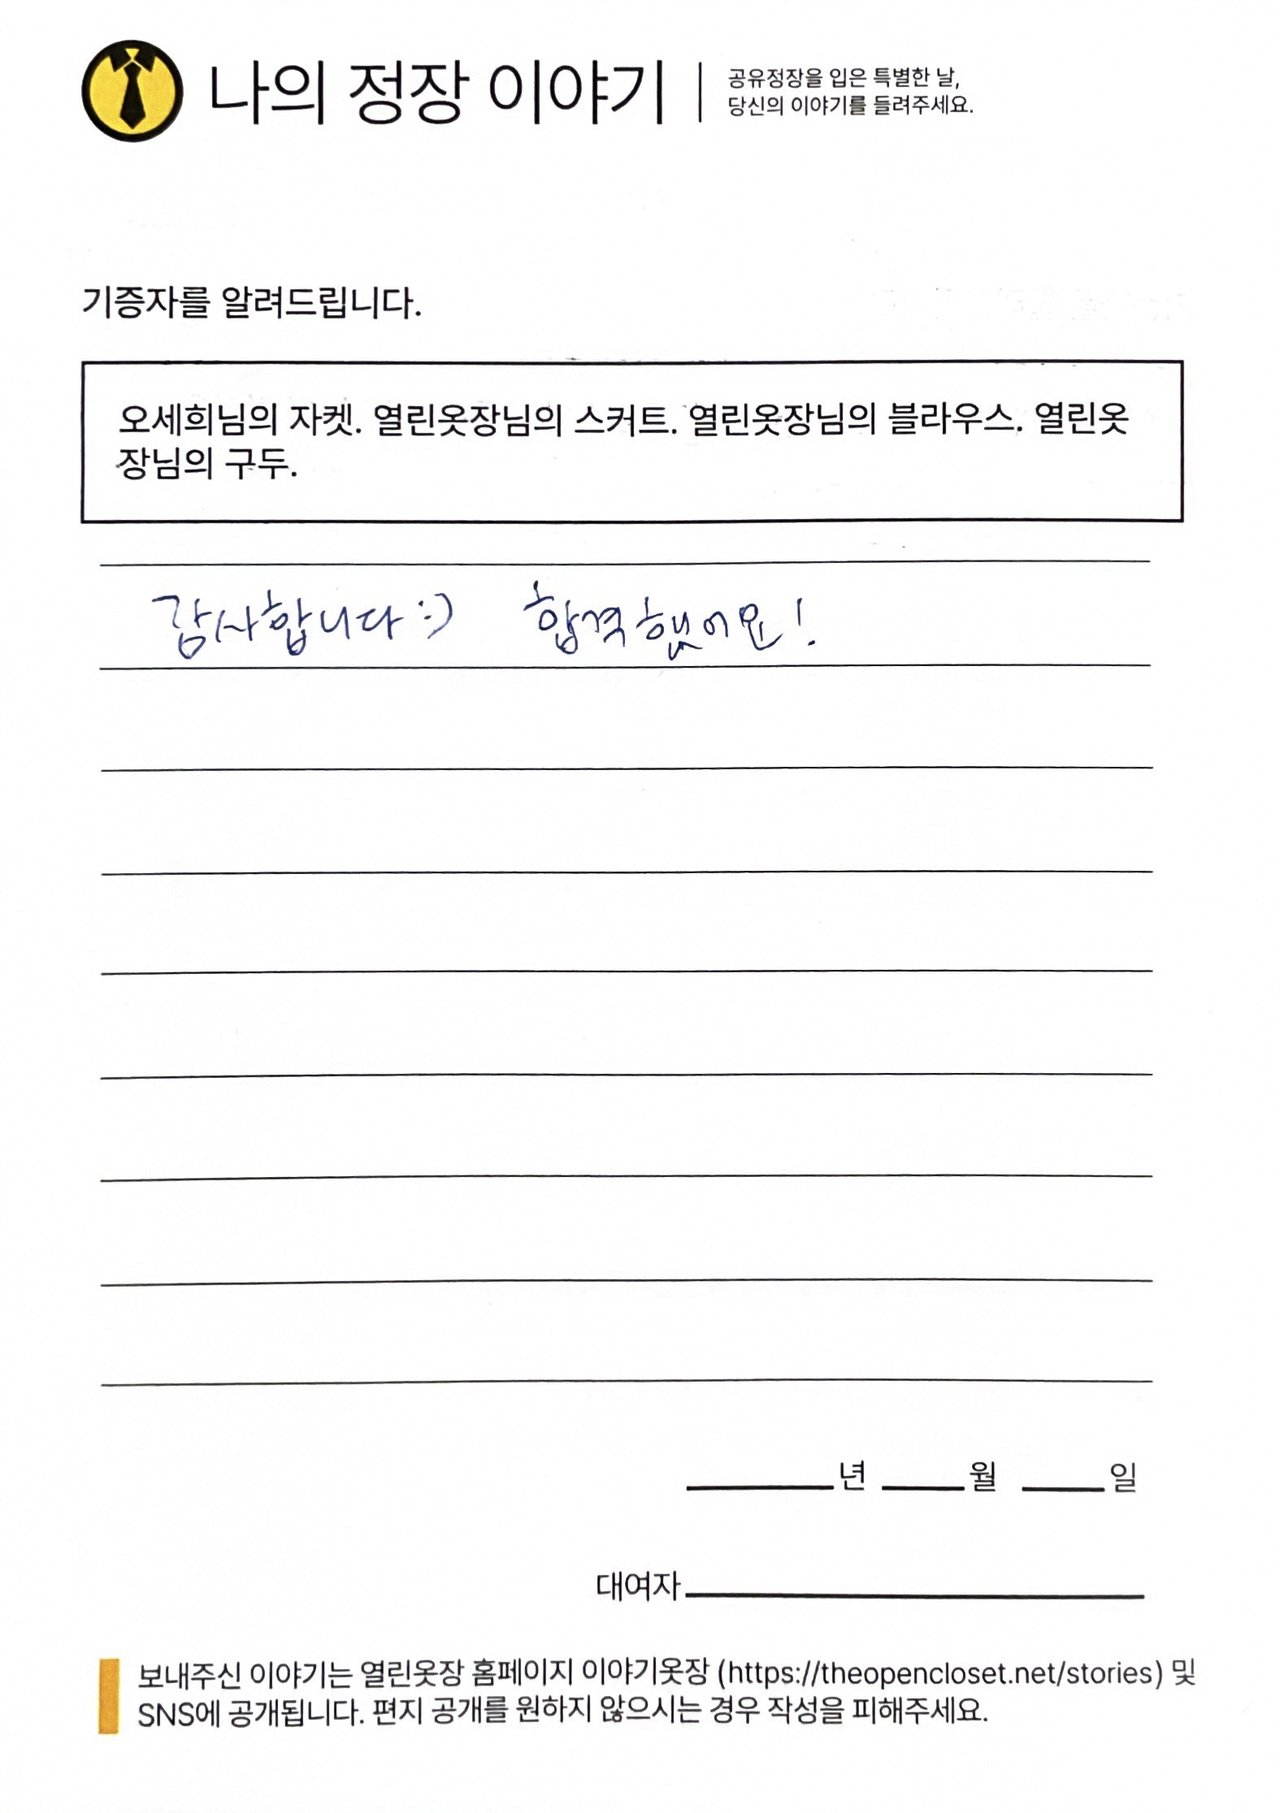 나의 정장 이야기
공유정장을 입은 특별한 날,
당신의 이야기를 들려주세요.
기증자를 알려드립니다.
오세희님의 자켓. 열린옷장님의 스커트. 열린옷장님의 블라우스. 열린옷
장님의 구두.
감사합니다 :) 합격했어요!
년 월 일
대여자
보내주신 이야기는 열린옷장 홈페이지 이야기옷장 (https://theopencloset.net/stories) 및
SNS에 공개됩니다. 편지 공개를 원하지 않으시는 경우 작성을 피해주세요.